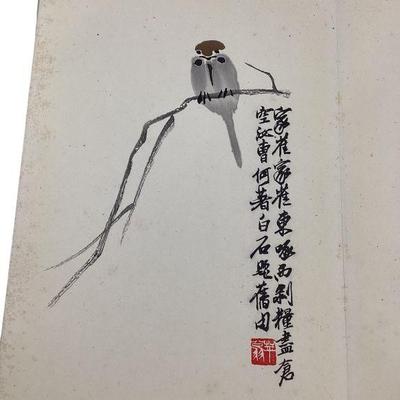 家雀家雀東啄西剝糧盡倉
空汝曹何著白石題舊句